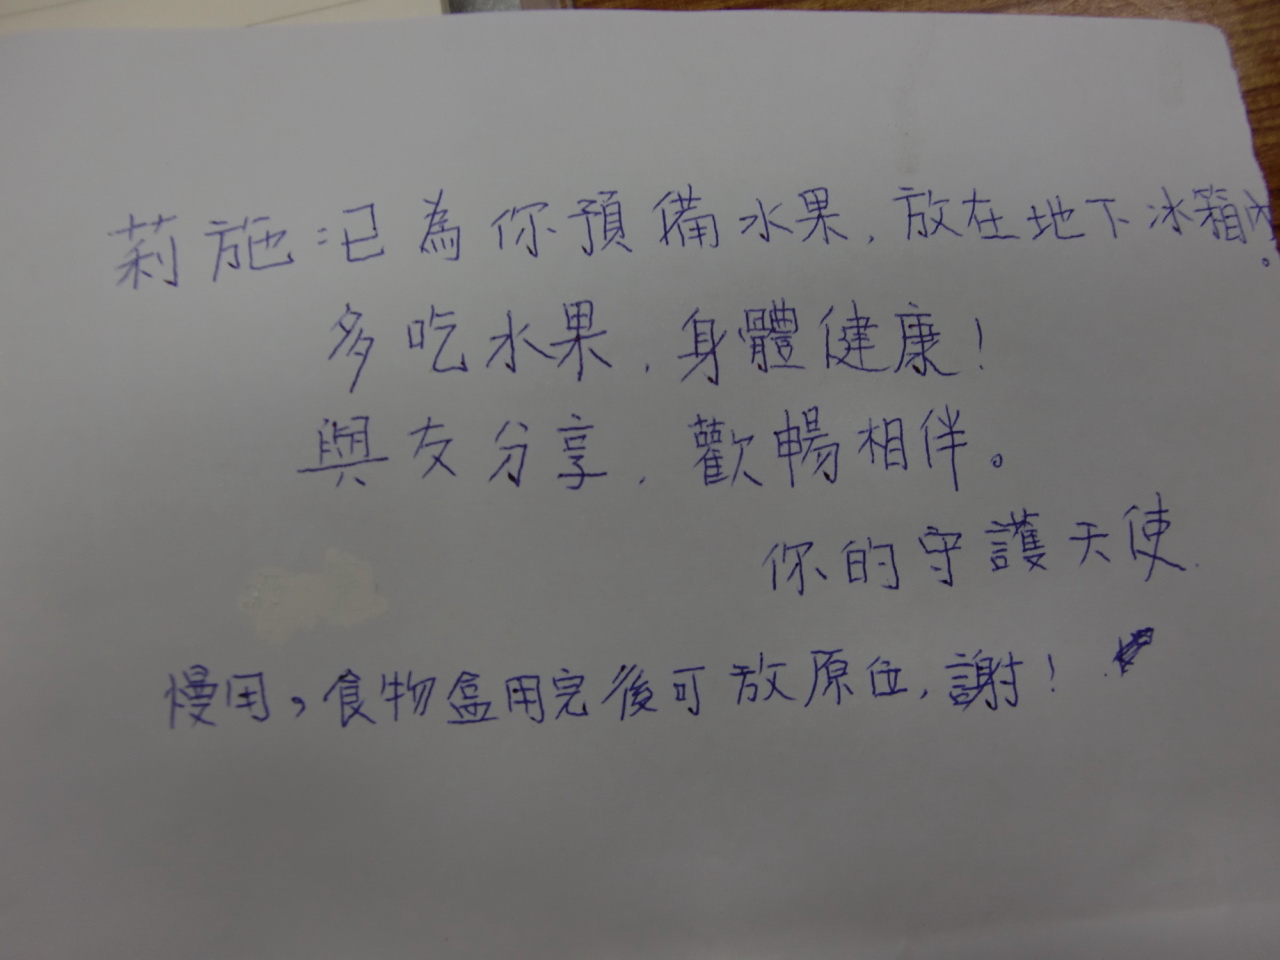 莉施:已為你預備水果,放在地下冰箱內。
多吃水果,身體健康!
與友分享,歡暢相伴。
你的守護天使
慢用,食物盒用完後可放原位,謝!